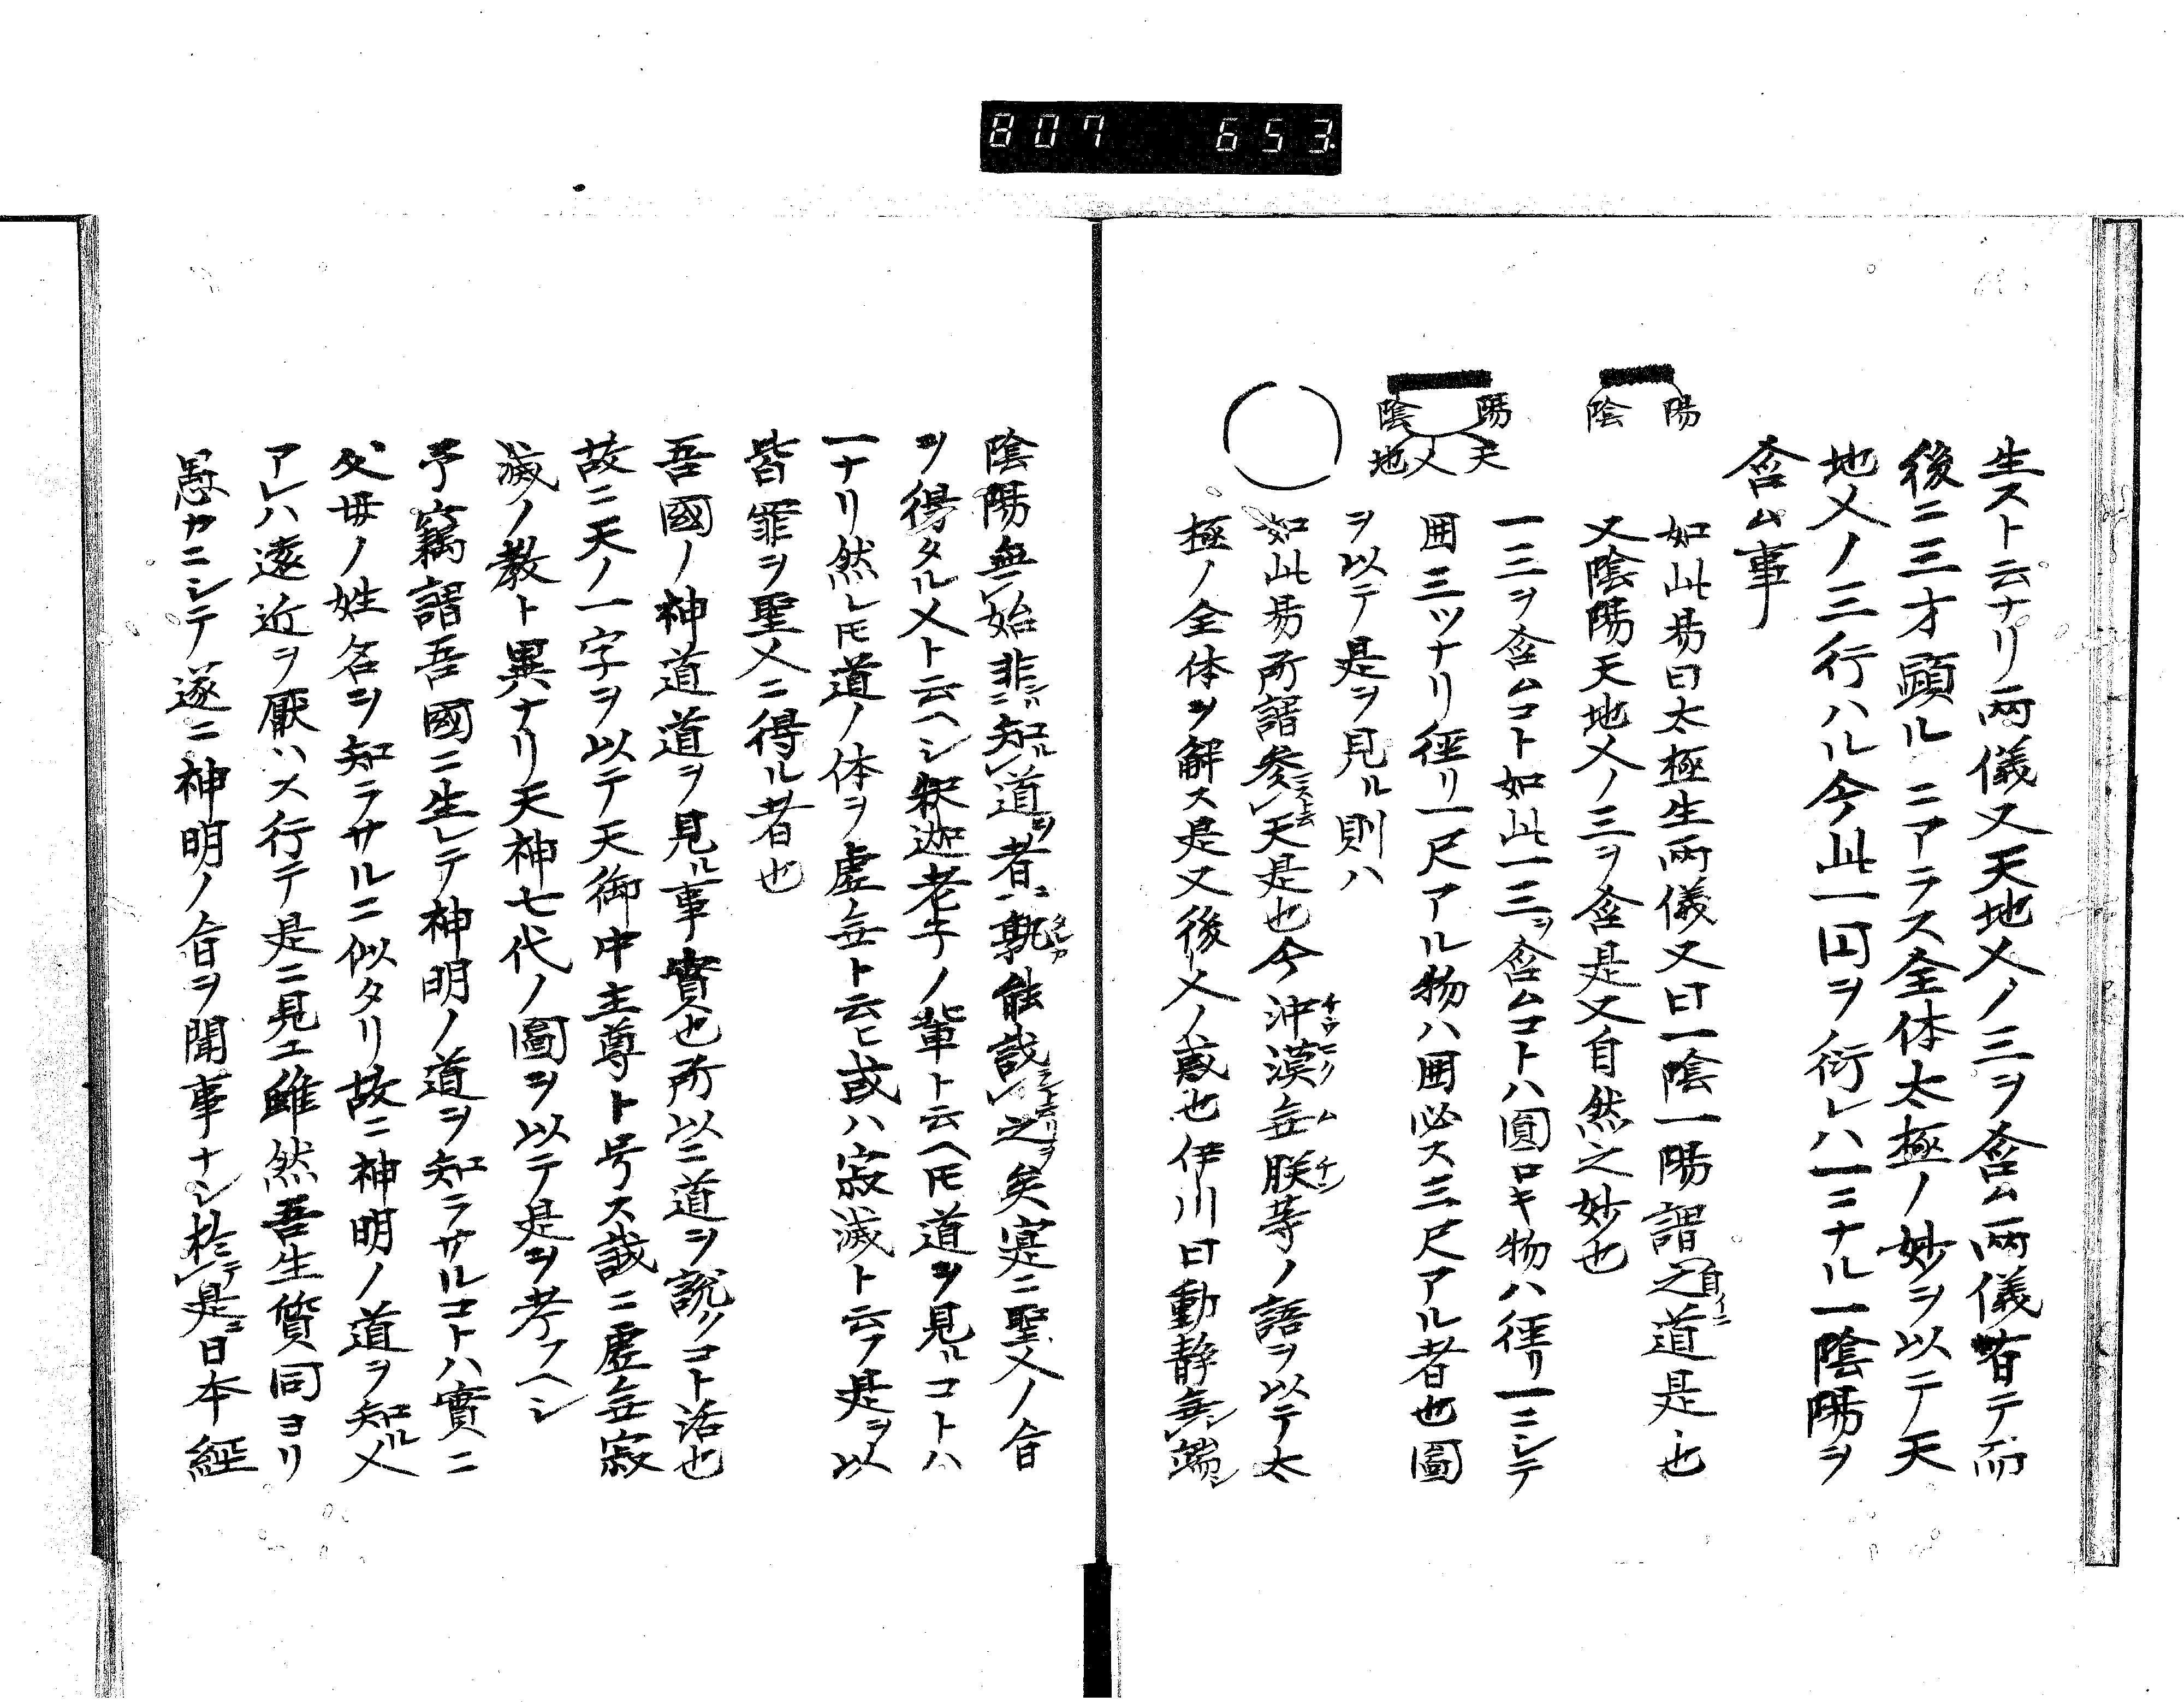 807 653
生スト云ナリ両儀又天地人ノ三ヲ含ム両儀有テ而
後ニ三才顕ルヽニアラス全体太極ノ妙ヲ以テ天
地人ノ三行ハル今此一円ヲ衍レハ一ニナル一陰陽ヲ
含ム事
陽
陰
如此易曰太極生両儀又曰一陰一陽謂之道是也
又陰陽天地人ノ三ヲ含是又自然之妙也
陽
陰
天
人
地
一三ヲ含ムコト如此一三ヲ含ムコトハ圓ロキ物ハ徑リ一ニシテ
囲三ツナリ徑リ一尺アル物ハ囲必ス三尺アル者也圖
ヲ以テ是ヲ見ル則ハ
如此易所謂参天是也今冲漠無朕等ノ語ヲ以テ太
極ノ全体ヲ解ス是又後人ノ蔵也伊川曰動静無端
陰陽無始非知道者孰能識之矣寔ニ聖人ノ旨
ヲ得タル人ト云ヘシ釈迦老子ノ輩ト云ヘトモ道ヲ見ルコトハ
一ナリ然レトモ道ノ体ヲ虚無ト云ヒ或ハ寂滅ト云フ是ヲ以
皆罪ヲ聖人ニ得ル者也
吾國ノ神道道ヲ見ル事實也所以ニ道ヲ説クコト活也
故ニ天ノ一字ヲ以テ天御中主尊ト号ス誠ニ虚無寂
滅ノ教ト異ナリ天神七代ノ圖ヲ以テ是ヲ考フヘシ
予竊謂吾國ニ生レテ神明ノ道ヲ知ラサルコトハ實ニ
父母ノ姓名ヲ知ラサルニ似タリ故ニ神明ノ道ヲ知ル人
アレハ遠近ヲ厭ハス行テ是ニ見エ雖然吾生質同ヨリ
愚カニシテ遂ニ神明ノ旨ヲ聞事ナシ於是日本經